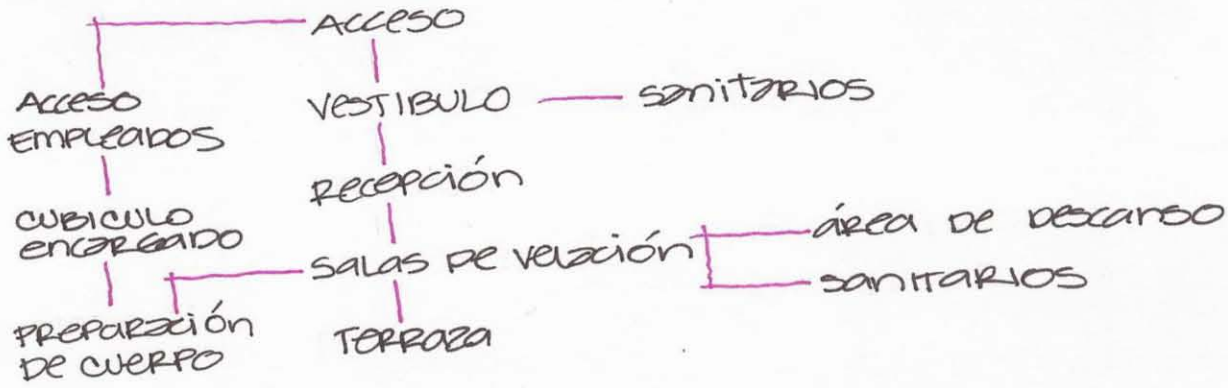 ACCESO
ACCESO
EMPLEADOS
VESTIBULO
SANITARIOS
RECEPCIÓN
CUBICULO
ENCARGADO
SALAS DE VELACIÓN
ÁREA DE DESCANSO
SANITARIOS
PREPARACIÓN
DE CUERPO
TERRAZA